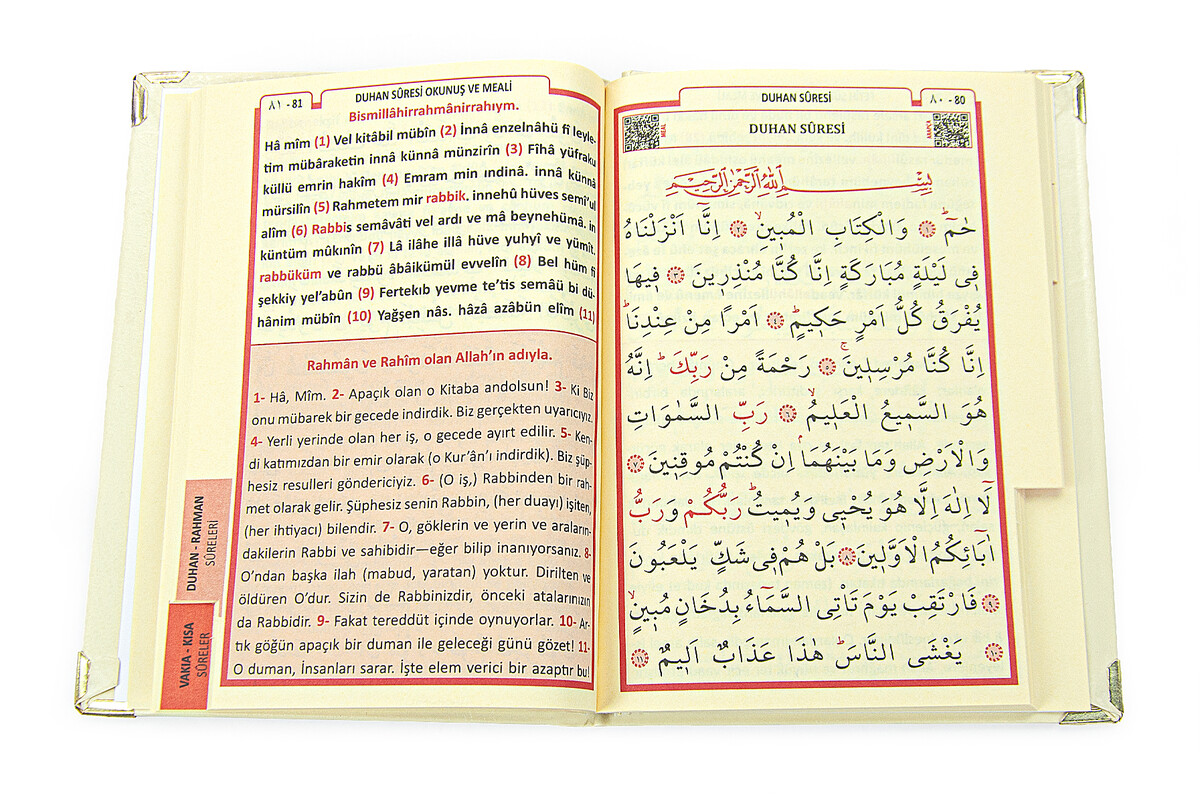 ٨١ - 81
DUHAN SÛRESİ OKUNUŞ VE MEALİ
Bismillâhirrahmânirrahıym.
Hâ mîm (1) Vel kitâbil mübîn (2) İnnâ enzelnâhü fî leyle-
tim mübâraketin innâ künnâ münzirîn (3) Fîhâ yüfraku
küllü emrin hakîm (4) Emram min ındinâ. innâ künnâ
mürsilîn (5) Rahmetem mir rabbik. innehû hüves semî'ul
alîm (6) Rabbis semâvâti vel ardı ve mâ beynehümâ. in
küntüm mûkınîn (7) Lâ ilâhe illâ hüve yuhyî ve yümît.
rabbüküm ve rabbü âbâikümül evvelîn (8) Bel hüm fî
şekkiy yel'abûn (9) Fertekıb yevme te'tis semâü bi dü-
hânim mübîn (10) Yağşen nâs. hâzâ azâbün elîm (11)
Rahmân ve Rahîm olan Allah'ın adıyla.
1- Hâ, Mîm. 2- Apaçık olan o Kitaba andolsun! 3- Ki Biz
onu mübarek bir gecede indirdik. Biz gerçekten uyarıcıyız.
4- Yerli yerinde olan her iş, o gecede ayırt edilir. 5- Ken-
di katımızdan bir emir olarak (o Kur'ân'ı indirdik). Biz şüp-
hesiz resulleri göndericiyiz. 6- (O iş,) Rabbinden bir rah-
met olarak gelir. Şüphesiz senin Rabbin, (her duayı) işiten,
(her ihtiyacı) bilendir. 7- O, göklerin ve yerin ve araların-
dakilerin Rabbi ve sahibidir—eğer bilip inanıyorsanız. 8-
O'ndan başka ilah (mabud, yaratan) yoktur. Dirilten ve
öldüren O'dur. Sizin de Rabbinizdir, önceki atalarınızın
da Rabbidir. 9- Fakat tereddüt içinde oynuyorlar. 10- Ar-
tık göğün apaçık bir duman ile geleceği günü gözet! 11-
O duman, İnsanları sarar. İşte elem verici bir azaptır bu!
DUHAN - RAHMAN
SÛRELERİ
VAKIA - KISA
SÛRELER
DUHAN SÛRESİ
٨٠ - 80
MEAL
DUHAN SÛRESİ
بِسْمِ اللّٰهِ الرَّحْمٰنِ الرَّحِيمِ
حٰمٓ ۚ ﴿١﴾ وَالْكِتَابِ الْمُبٖينِ ۙ ﴿٢﴾ اِنَّٓا اَنْزَلْنَاهُ
فٖى لَيْلَةٍ مُبَارَكَةٍ اِنَّا كُنَّا مُنْذِرٖينَ ﴿٣﴾ فٖيهَا
يُفْرَقُ كُلُّ اَمْرٍ حَكٖيمٍ ۙ ﴿٤﴾ اَمْرًا مِنْ عِنْدِنَا ؕ
اِنَّا كُنَّا مُرْسِلٖينَ ۚ ﴿٥﴾ رَحْمَةً مِنْ رَبِّكَ ؕ اِنَّهُ
هُوَ السَّمٖيعُ الْعَلٖيمُ ۙ ﴿٦﴾ رَبِّ السَّمٰوَاتِ
وَالْاَرْضِ وَمَا بَيْنَهُمَا ۘ اِنْ كُنْتُمْ مُوقِنٖينَ ﴿٧﴾
لَٓا اِلٰهَ اِلَّا هُوَ يُحْيٖى وَيُمٖيتُ ؕ رَبُّكُمْ وَرَبُّ
اٰبَٓائِكُمُ الْاَوَّلٖينَ ﴿٨﴾ بَلْ هُمْ فٖى شَكٍّ يَلْعَبُونَ
﴿٩﴾ فَارْتَقِبْ يَوْمَ تَاْتِى السَّمَٓاءُ بِدُخَانٍ مُبٖينٍ ۙ
﴿١٠﴾ يَغْشَى النَّاسَ ؕ هٰذَا عَذَابٌ اَلٖيمٌ ﴿١١﴾